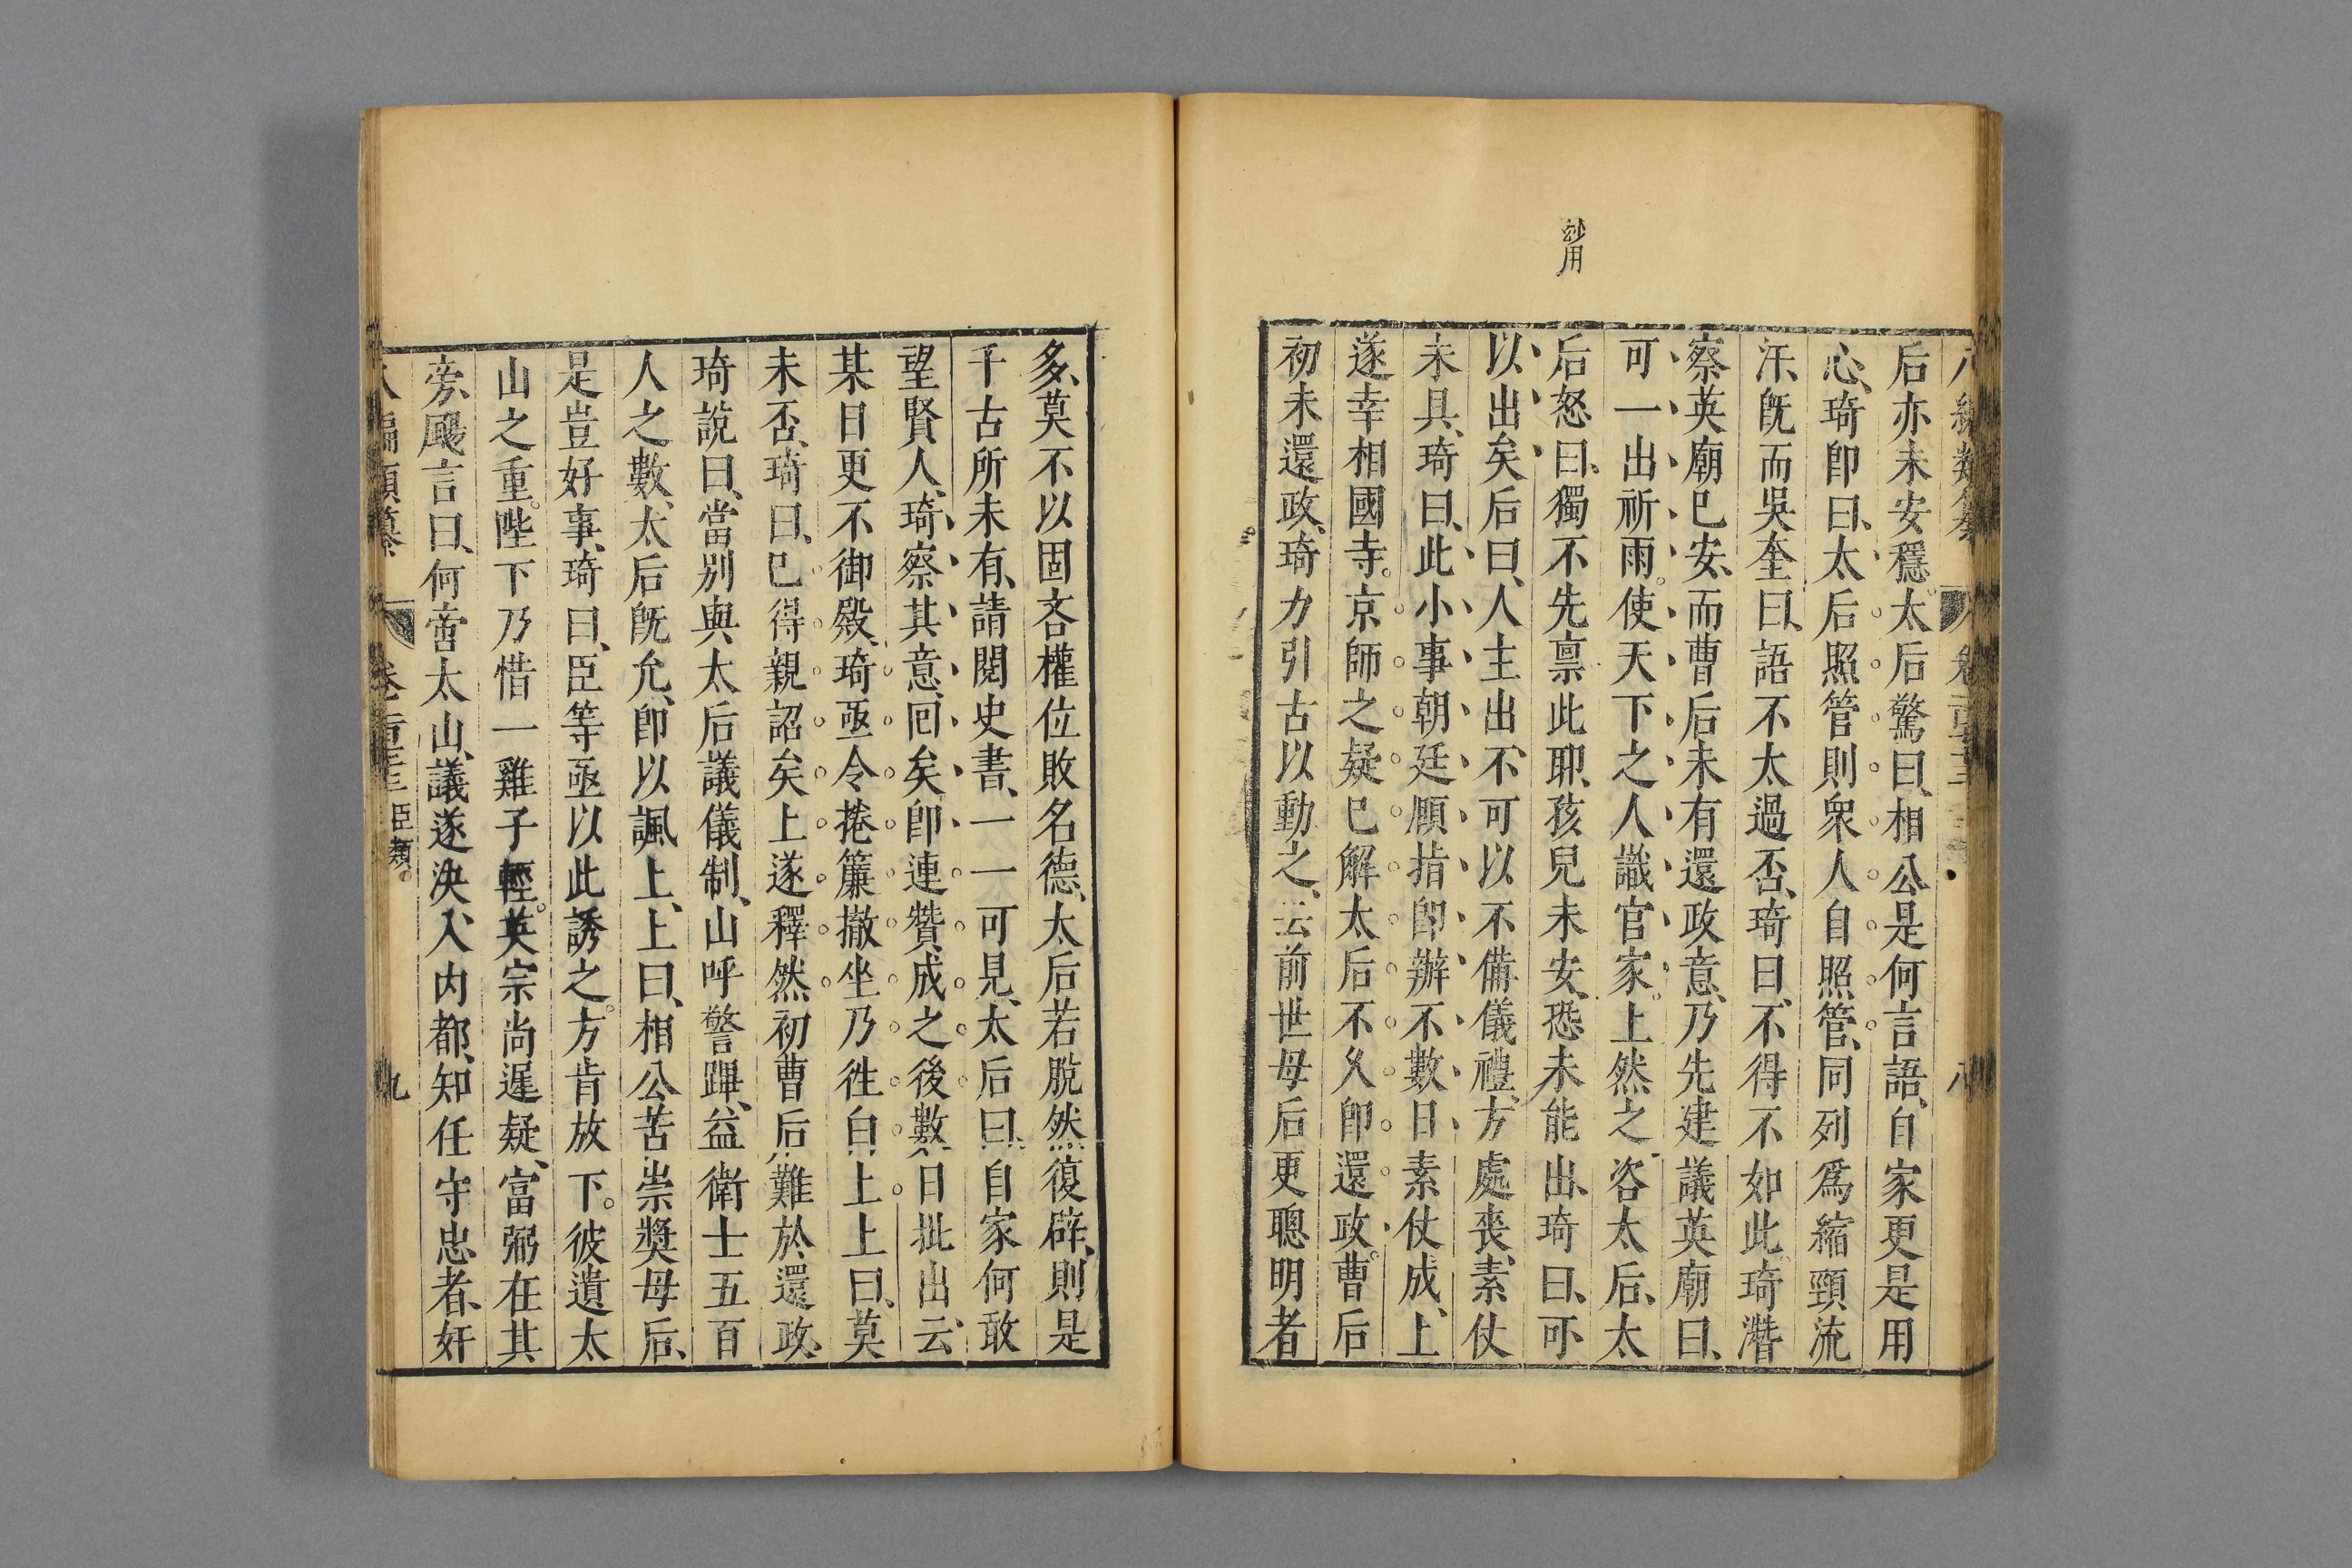 妙用
后亦未安穩。太后驚曰、相公是何言語、自家更是用
心、琦卽曰、太后照管則衆人自照管、同列爲縮頸流
汗、旣而吳奎曰、語不太過否、琦曰、不得不如此。琦潛
察英廟已安、而曹后未有還政意、乃先建議英廟曰、
可一出祈雨。使天下之人識官家。上然之咨太后、太
后怒曰、獨不先禀此耶、孩兒未安、恐未能出、琦曰、可
以出矣后曰、人主出、不可以不備儀禮、方處喪、素仗
未具、琦曰、此小事朝廷願指卽辦不數日素仗成、上
遂幸相國寺。京師之疑已解太后不久卽還政。曹后
初未還政、琦力引古以動之、云前世母后更聰明者
多、莫不以固吝權位敗名德、太后若脫然復辟、則是
千古所未有、請閱史書、一一可見、太后曰、自家何敢
望賢人、琦察其意回矣卽連贊成之後數日批出、云
某日更不御殿、琦亟令捲簾撤坐乃徃白上上曰、莫
未否、琦曰、已得親詔矣上遂釋然初曹后難於還政、
琦說曰、當別與太后議儀制、山呼警蹕、益衛士五百
人之數、太后旣允、卽以諷上、上曰、相公苦崇奬母后、
是豈好事、琦曰、臣等亟以此誘之。方肯放下。彼遺太
山之重。陛下乃惜一雞子輕。英宗尚遲疑、富弼在其
旁、颺言曰、何啻太山、議遂決、入内都、知任守忠者、奸
八編類纂 卷一百三十三 臣類。 九